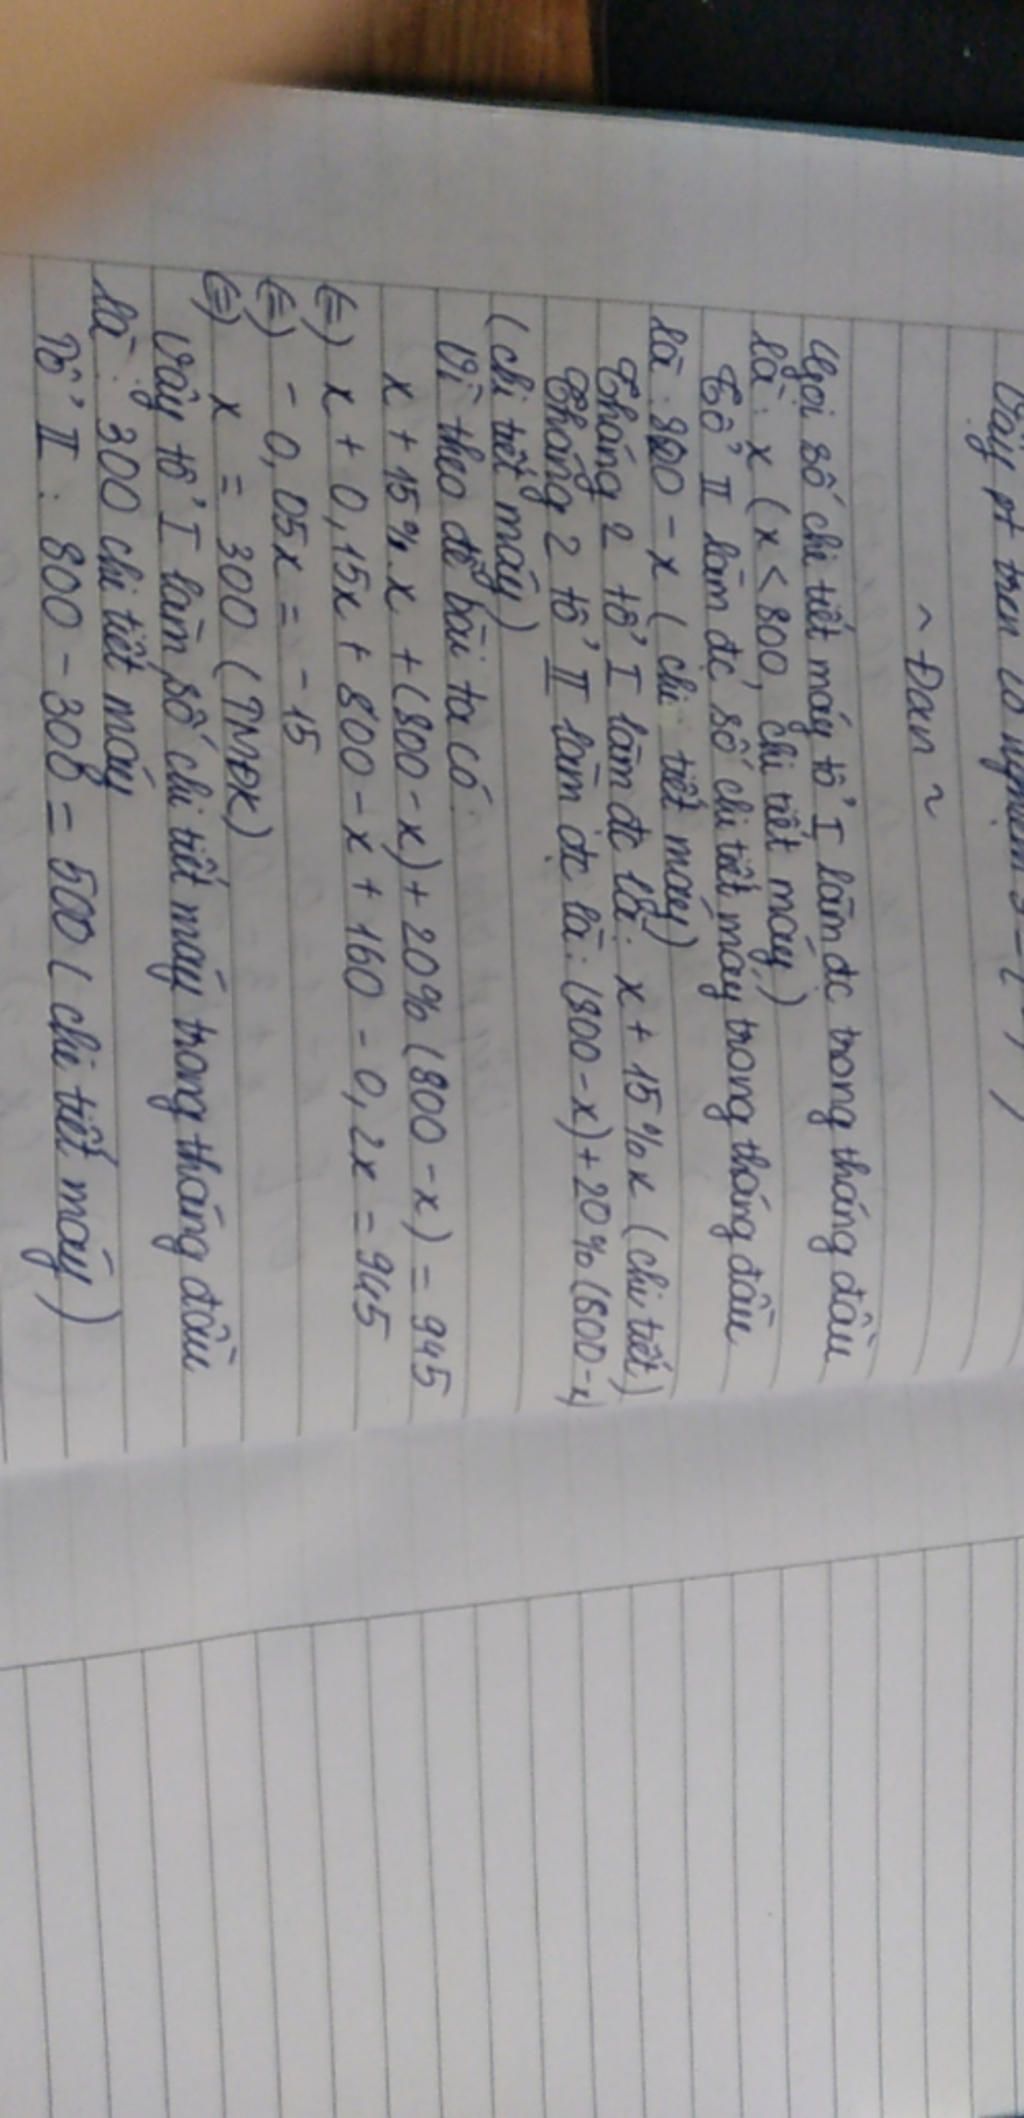 Vậy pt trên có nghiệm S =
~ Đan ~
Gọi số chi tiết máy tổ I làm đc trong tháng đầu
là: x (x < 800, chi tiết máy)
Tổ II làm đc số chi tiết máy trong tháng đầu
là: 800 - x (chi tiết máy)
Tháng 2 tổ I làm đc là: x + 15% x (chi tiết)
Tháng 2 tổ II làm đc là: (800 - x) + 20% (800 - x)
(chi tiết máy)
Vì theo đề bài ta có:
x + 15%. x + (800 - x) + 20% (800 - x) = 945
(=) x + 0,15x + 800 - x + 160 - 0,2x = 945
(=) - 0,05x = - 15
(=) x = 300 (TMĐK)
Vậy tổ I làm số chi tiết máy trong tháng đầu
là: 300 chi tiết máy
Tổ II: 800 - 300 = 500 (chi tiết máy)